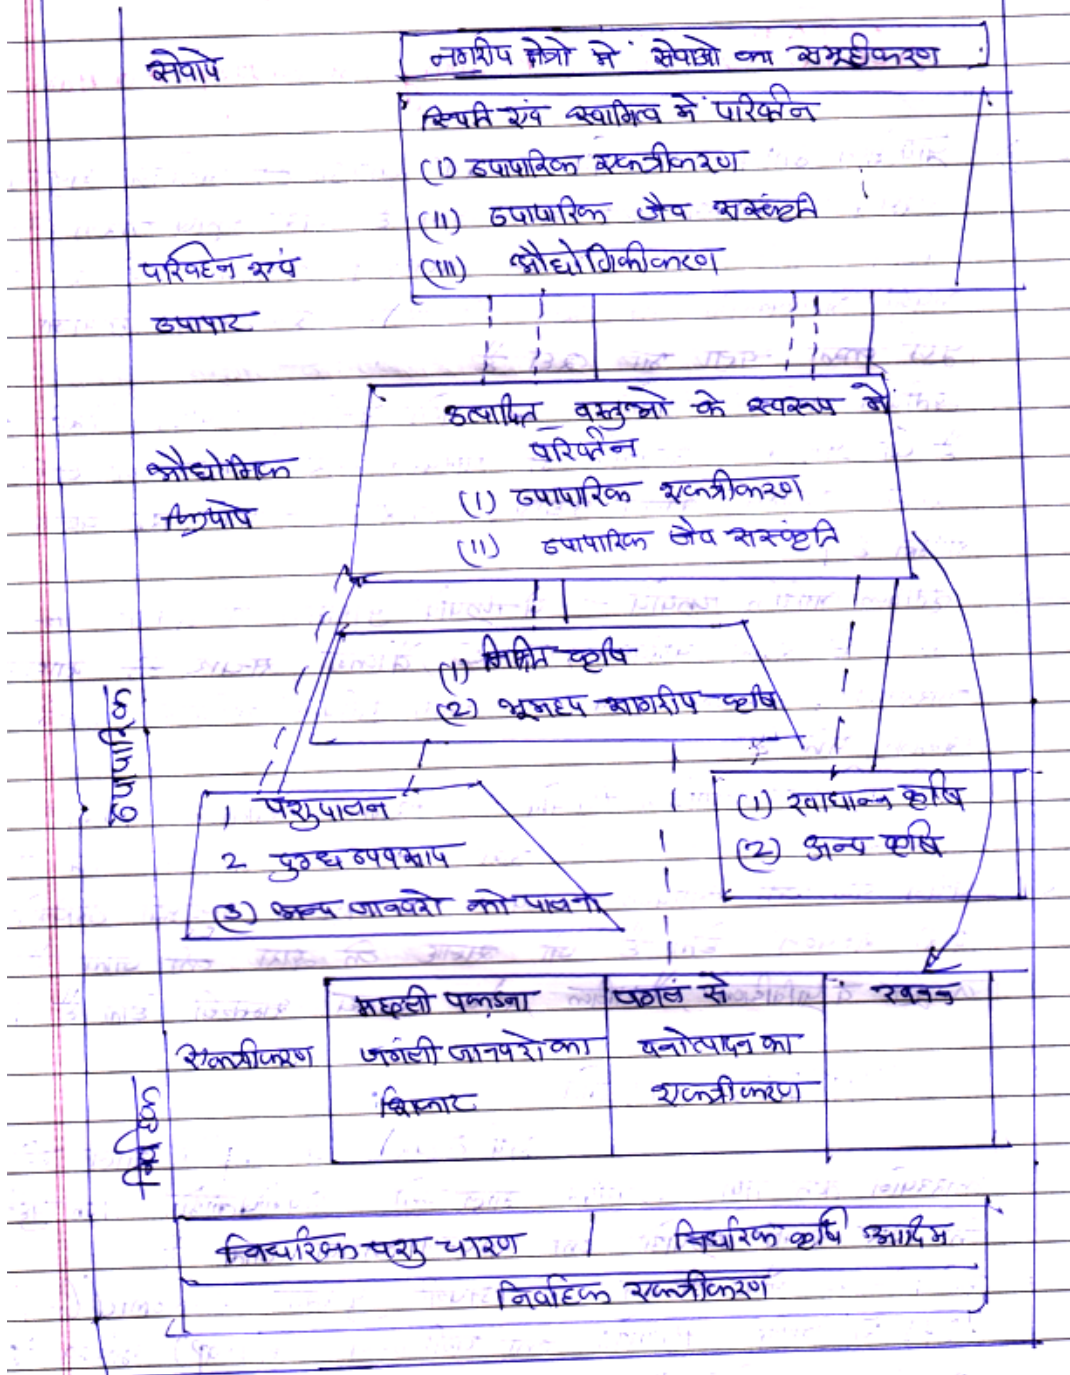 सेवाये
नगरीय क्षेत्रो मे सेवाओ का समूहीकरण
स्थिति एवं स्वामित्व में परिवर्तन
(I) व्यापारिक एकत्रीकरण
(II) व्यापारिक जैव सस्कंृति
(III) औद्योगिकीकरण
परिवहन एवं
व्यापार
उत्पादित वस्तुओ के स्वरूप में
परिवर्तन
(I) व्यापारिक एकत्रीकरण
(II) व्यापारिक जैव सस्कंृति
औद्योगिक
क्रियाये
(1) मिश्रित कृषि
(2) भूमध्य सागरीय कृषि
व्यापारिक
1 पशुपालन
2 दुग्ध व्यवसाय
(3) अन्य जानवरो को पालना
(1) खाद्यान्न कृषि
(2) अन्य कृषि
एकत्रीकरण
मछली पकडना
जगंली जानवरो का
शिकार
से
वनोत्पादन का
एकत्रीकरण
खनन
पशु चारण
कृषि आदिम
निर्वाहक एकत्रीकरण